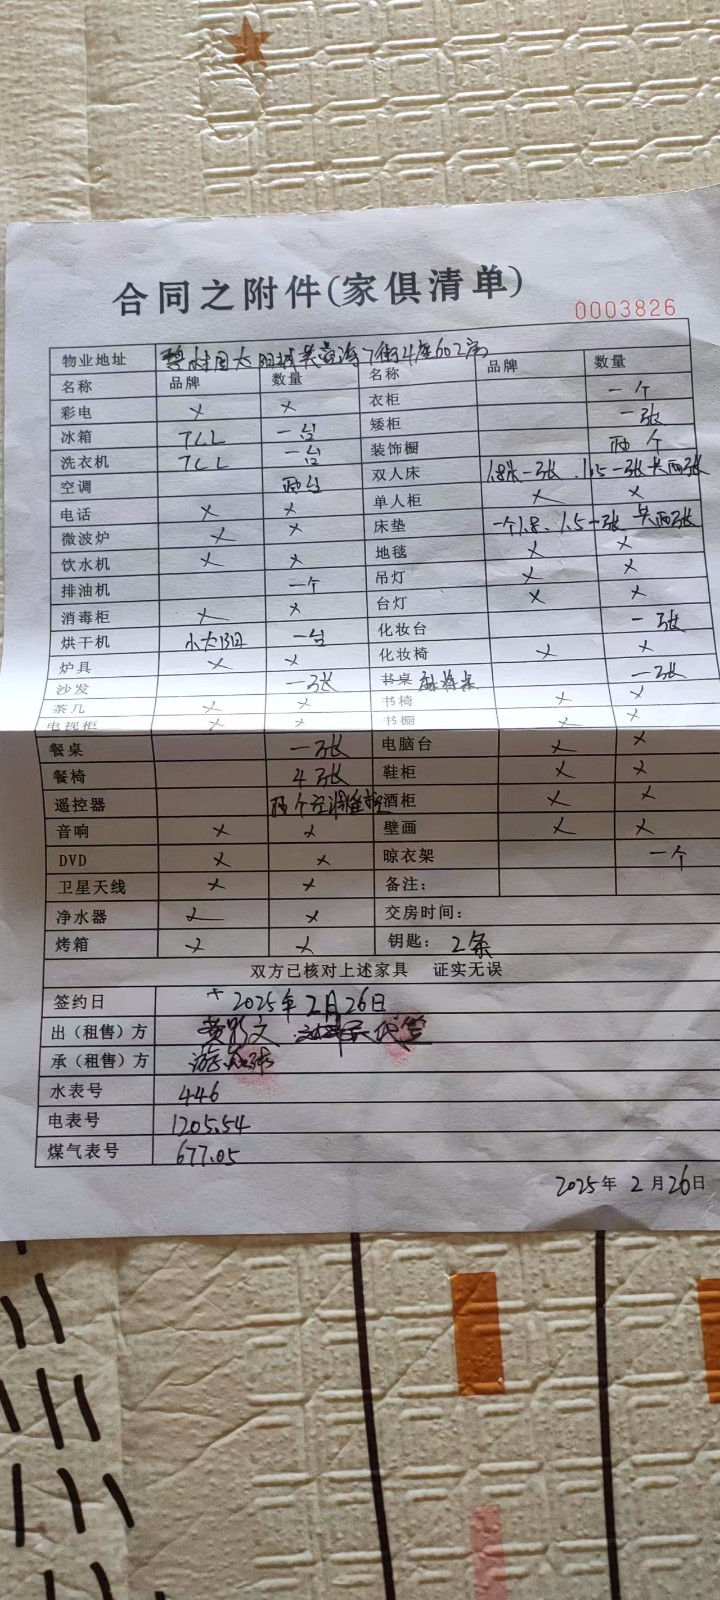 合同之附件(家俱清单)
0003826
物业地址 碧桂园太阳城芙蓉海7街4座602房
名称 品牌 数量 名称 品牌 数量
彩电 × × 衣柜 一个
冰箱 TCL 一台 矮柜 一张
洗衣机 TCL 一台 装饰橱 两个
空调 两台 双人床 1.8米一张 .1.5一张 共两张
电话 × × 单人柜 × ×
微波炉 × × 床垫 一个1.8、1.5一张 共两张
饮水机 × × 地毯 × ×
排油机 一个 吊灯 × ×
消毒柜 × × 台灯 × ×
烘干机 一台 化妆台 一张
炉具 × × 化妆椅 × ×
沙发 一张 书桌 一张
茶几 × × 书椅 × ×
电视柜 × × 书橱 × ×
餐桌 一张 电脑台 × ×
餐椅 4张 鞋柜 × ×
遥控器 两个空调遥控 酒柜 × ×
音响 × × 壁画 × ×
DVD × × 晾衣架 一个
卫星天线 × × 备注：
净水器 × × 交房时间：
烤箱 × × 钥匙： 2条
双方已核对上述家具 证实无误
签约日 2025年2月26日
出（租售）方 代签
承（租售）方
水表号 446
电表号 1205.54
煤气表号 677.05
2025年 2月26日